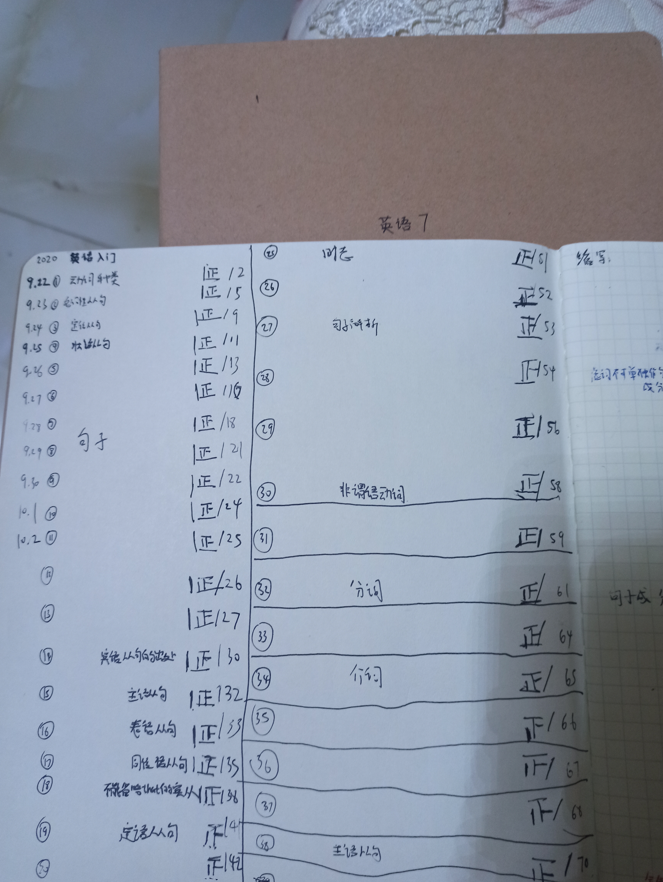 英语7
2020 英语入门
9.22 ① 动词种类 正/2
9.23 ② 名词性从句 正/5
9.24 ③ 定语从句 正/9
9.25 ④ 状语从句 正/11
9.26 ⑤ 正/13
9.27 ⑥ 正/16
9.28 ⑦ 正/18
9.29 ⑧ 句子 正/21
9.30 ⑨ 正/22
10.1 ⑩ 正/24
10.2 ⑪ 正/25
⑫ 正/26
⑬ 正/27
⑭ 宾语从句 正/30
⑮ 主语从句 正/32
⑯ 表语从句 正/33
⑰ 同位语从句 正/35
⑱ 不能省略that的宾从 正/38
⑲ 定语从句 正/4
⑳ 正/42
㉕ 时态 正/51
㉖ 正/52
㉗ 句子分析 正/53
㉘ 正/54
㉙ 正/56
㉚ 非谓语动词 正/58
㉛ 正/59
㉜ 分词 正/61
㉝ 正/64
㉞ 介词 正/65
㉟ 正/66
㊱ 正/67
㊲ 正/68
㊳ 主语从句 正/70
缩写: